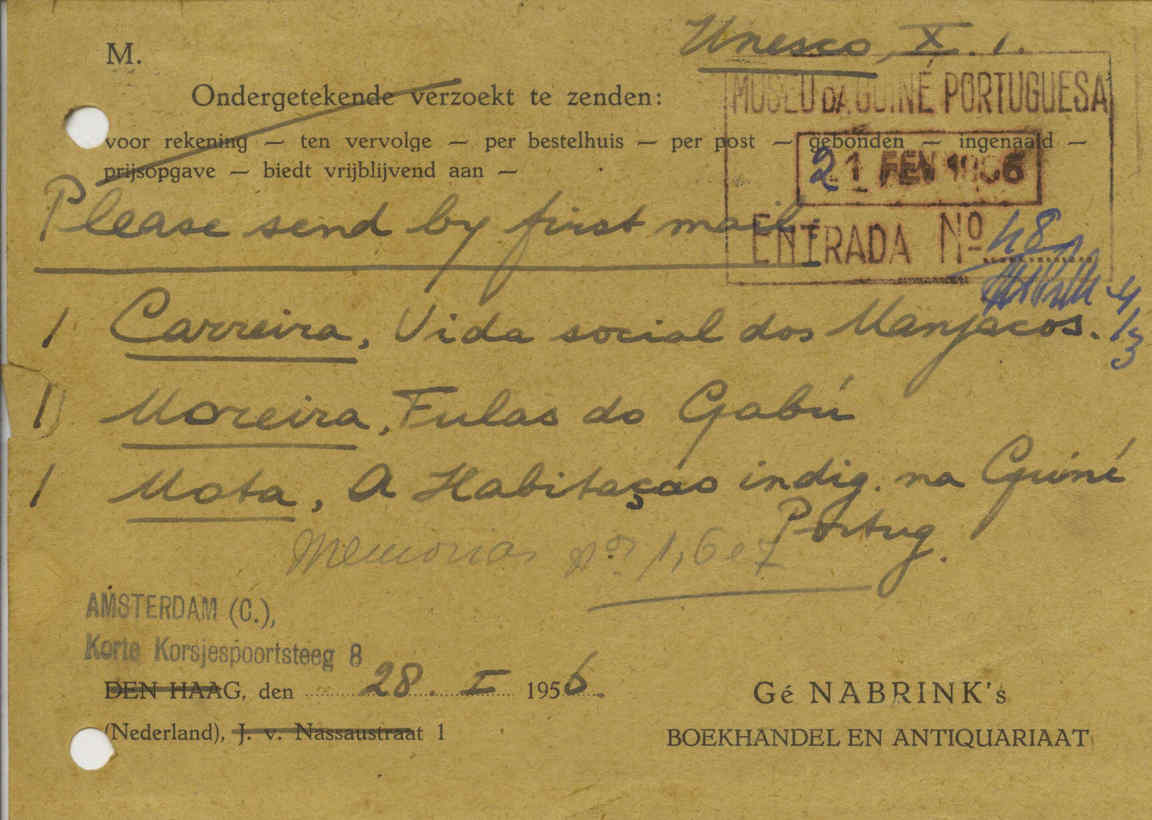 Unesco X. 1.
M.
MUSEU DA GUINÉ PORTUGUESA
Ondergetekende verzoekt te zenden:
voor rekening — ten vervolge — per bestelhuis — per post — gebonden — ingenaaid —
21 FEV 1956
prijsopgave — biedt vrijblijvend aan —
Please send by first mail:
ENTRADA Nº 48
4/3
1 Carreira, Vida social dos Manjacos.
1 Moreira, Fulas do Gabú
1 Mota, A Habitaçao indig. na Guiné
Portug.
Memorias nos 1, 6 e 7
AMSTERDAM (C.),
Korte Korsjespoortsteeg 8
DEN HAAG, den 28. I 1956.
(Nederland), J. v. Nassaustraat 1
Gé NABRINK's
BOEKHANDEL EN ANTIQUARIAAT